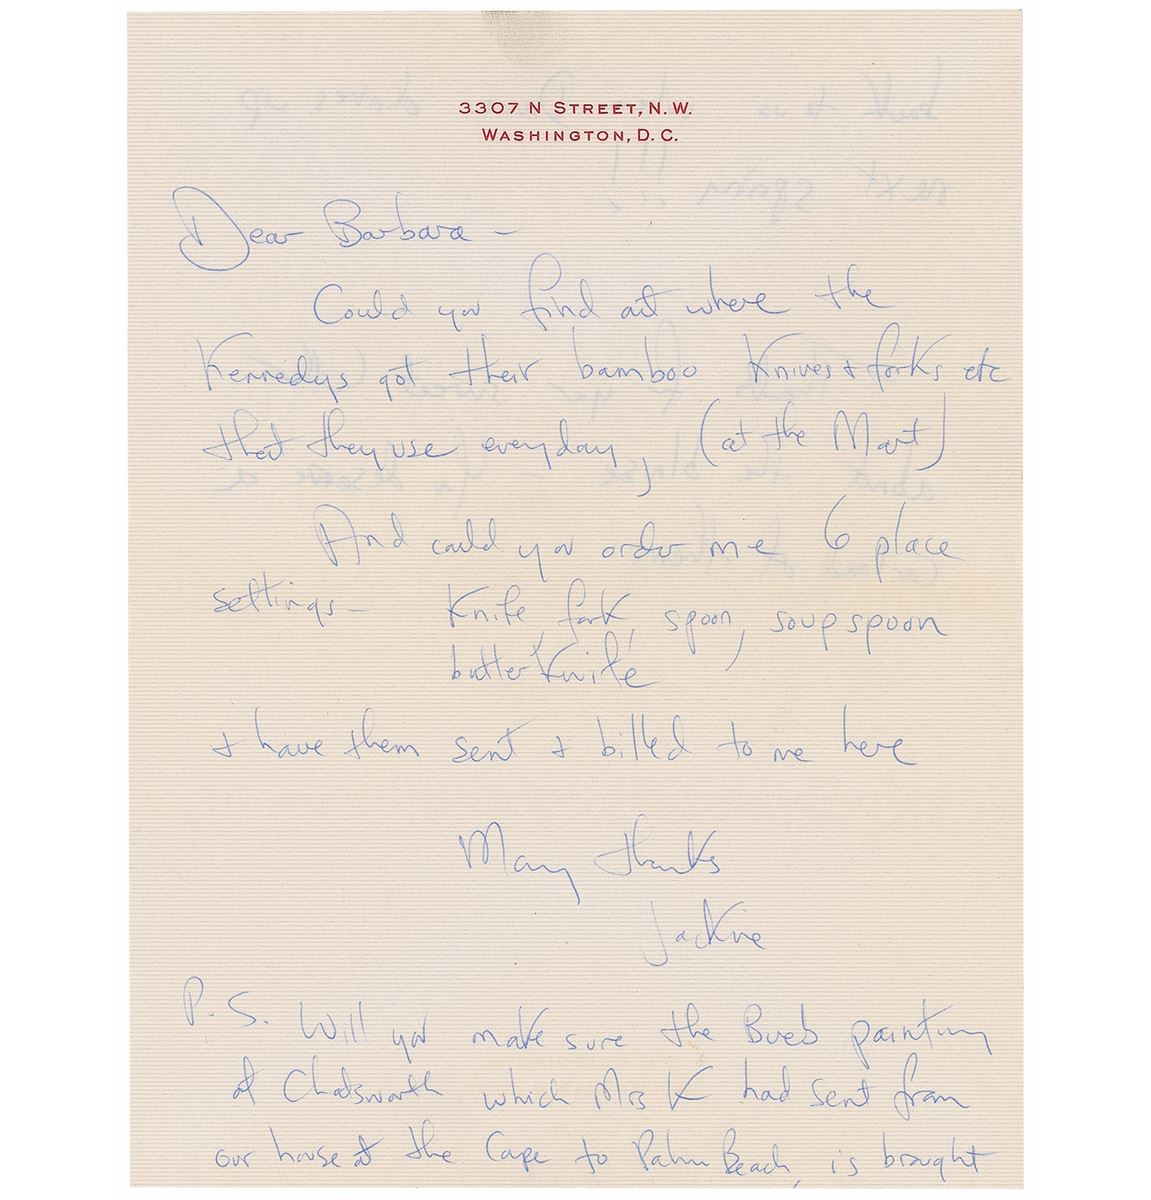 3307 N STREET, N.W.
WASHINGTON, D.C.
Dear Barbara -
Could you find out where the
Kennedys got their bamboo Knives + forks etc
that they use everyday, (at the Mart)
And could you order me 6 place
settings - Knife, fork, spoon, soup spoon
butter Knife
+ have them sent + billed to me here
Many thanks
Jackie
P.S. Will you make sure the painting
of Chatsworth which Mrs K had sent from
our house at the Cape to Palm Beach, is brought